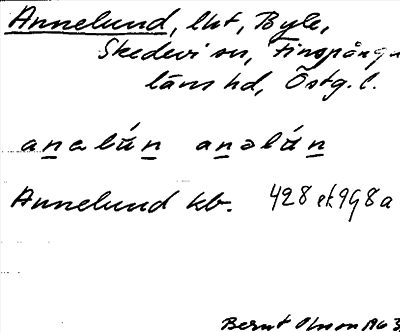 Annelund, lht, Byle,
Skedevi sn, Finspånga
läns hd, Östg. l.
anəlún anəlún
Annelund kb. 428 ek 9g8a
Bernt Olsson 1963